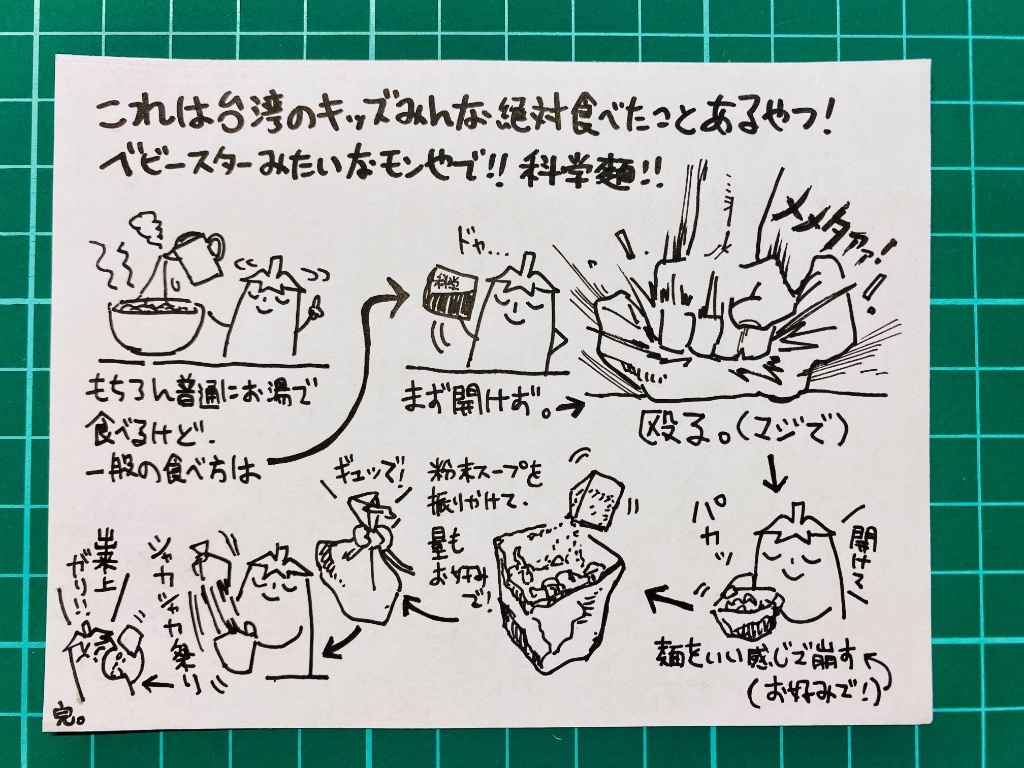 これは台湾のキッズみんな絶対食べたことあるやつ!
ベビースターみたいなモンやで!!科学麺!!
もちろん普通にお湯で
食べるけど.
一般の食べ方は
ドヤ...
科学
まず開けず。
メメタァ!
殴る。(マジで)
開けて
パカッ
麺をいい感じで崩す
(お好みで!)
粉末スープを
振りかけて.
量も
お好み
で!
ギュッで!
シャカシャカ祭り
出来上
ガリ!!
完。